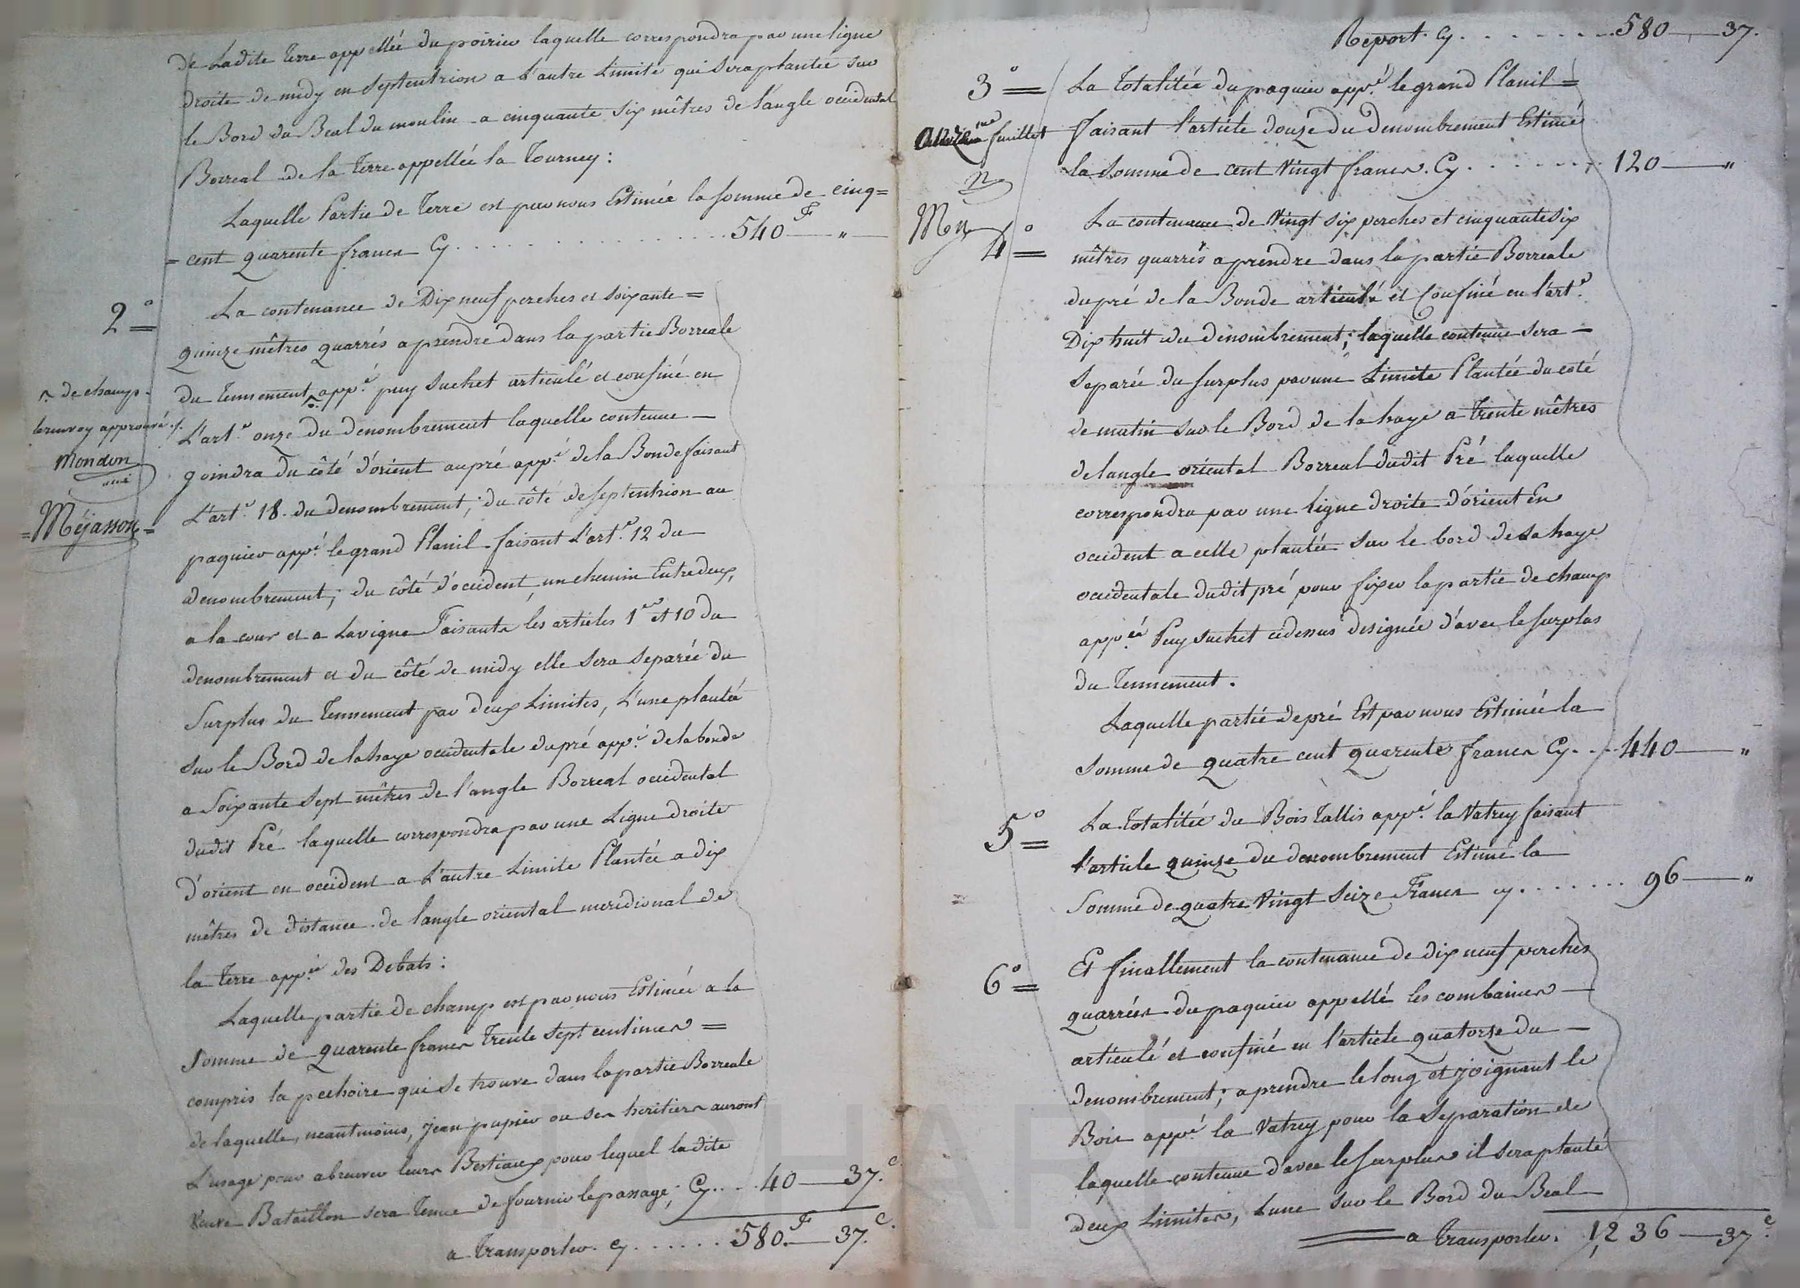 de Ladite Terre appellée du poirier laquelle correspondra par une ligne
droite de midy en septentrion a L'autre Limite qui sera plantée sur
le Bord du Beal du moulin a cinquante six mêtres de l'angle occidental
Borreal de la Terre appellée la Tourney :
Laquelle Partie de Terre est par nous Estimée la somme de cinq=
cent quarente francs Cy . . . . . . . 540 F — "
2° = La contenance de Dix neuf perches et soixante =
quinze mêtres quarrés a prendre dans la partie Borreale
du tennement app.é puy suchet articulé et confiné en
de champ.
le renvoy approuvé ./.
Mondon
Méjasson
L'art.e onze du denombrement laquelle contenue —
joindra du côté d'orient au pré app.é de la Bonde faisant
L'art.e 18. du denombrement ; du côté de septentrion au
paquier app.é le grand Planil faisant L'art.e 12 du
denombrement ; du côté d'occident, un chemin Entredeux,
a la cour et a La vigne faisants les articles 1er et 10 du
denombrement et du côté de midy elle sera separée du
Surplus du Tennement par deux Limites, L'une plantée
sur le Bord de la haye occidentale du pré app.é de la bonde
a Soixante Sept mêtres de l'angle Borreal occidental
dudit Pré laquelle correspondra par une Ligne droite
d'orient en occident a L'autre Limite Plantée a dix
mêtres de distance de l'angle oriental meridional de
la Terre app.ée des Debats :
Laquelle partie de champ est par nous Estimée a la
somme de quarente francs Trente sept centimes =
compris la pechoire qui se trouve dans la partie Borreale
de laquelle, neantmoins, jean papier ou ses heritiers auront
L'usage pour abreuver leurs Bestiaux pour lequel ladite
veuve Bataillon sera tenue de fournir le passage ; Cy . . . 40 — 37.c
a Transporter. cy . . . . . . 580. F — 37.c
Report. Cy . . . . . . . . 580 — 37.
3° = La Totalitée du paquier app.é le grand Planil =
feuillet
faisant l'article douze du denombrement Estimé
la somme de cent Vingt francs. Cy . . . . . . . 120 — "
4° = La contenance de Vingt six perches et cinquante six
mêtres quarrés a prendre dans la partie Borreale
du pré de la Bonde articulé et Confiné en l'art.e
Dix huit du denombrement ; laquelle contenue sera —
separée du surplus par une Limite Plantée du coté
de matin sur le Bord de la haye a Trente mêtres
de l'angle oriental Borreal dudit Pré laquelle
correspondra par une ligne droite d'orient en
occident a celle plantée sur le bord de la haye
occidentale dudit pré pour fixer la partie de champ
app.ée Puy suchet cidessus designée d'avec le surplus
du Tennement.
Laquelle partie de pré Est par nous Estimée la
somme de quatre cent quarente francs Cy . . . 440 — "
5° = La Totalitée du Bois Tallis app.é la Vatrey faisant
l'article quinze du denombrement Estimé la
Somme de quatre Vingt seize Francs cy . . . . . . . 96 — "
6° = Et finallement la contenance de dix neuf perches
quarrées du paquier appellé les combaines —
articulé et confiné en l'article quatorze du —
denombrement ; a prendre le long et joignant le
Bois app.é la Vatrey pour la Separation de
laquelle contenue d'avec le surplus il sera planté
deux Limites, Lune sur le Bord du Beal
a Transporter. 1,236 — 37.c